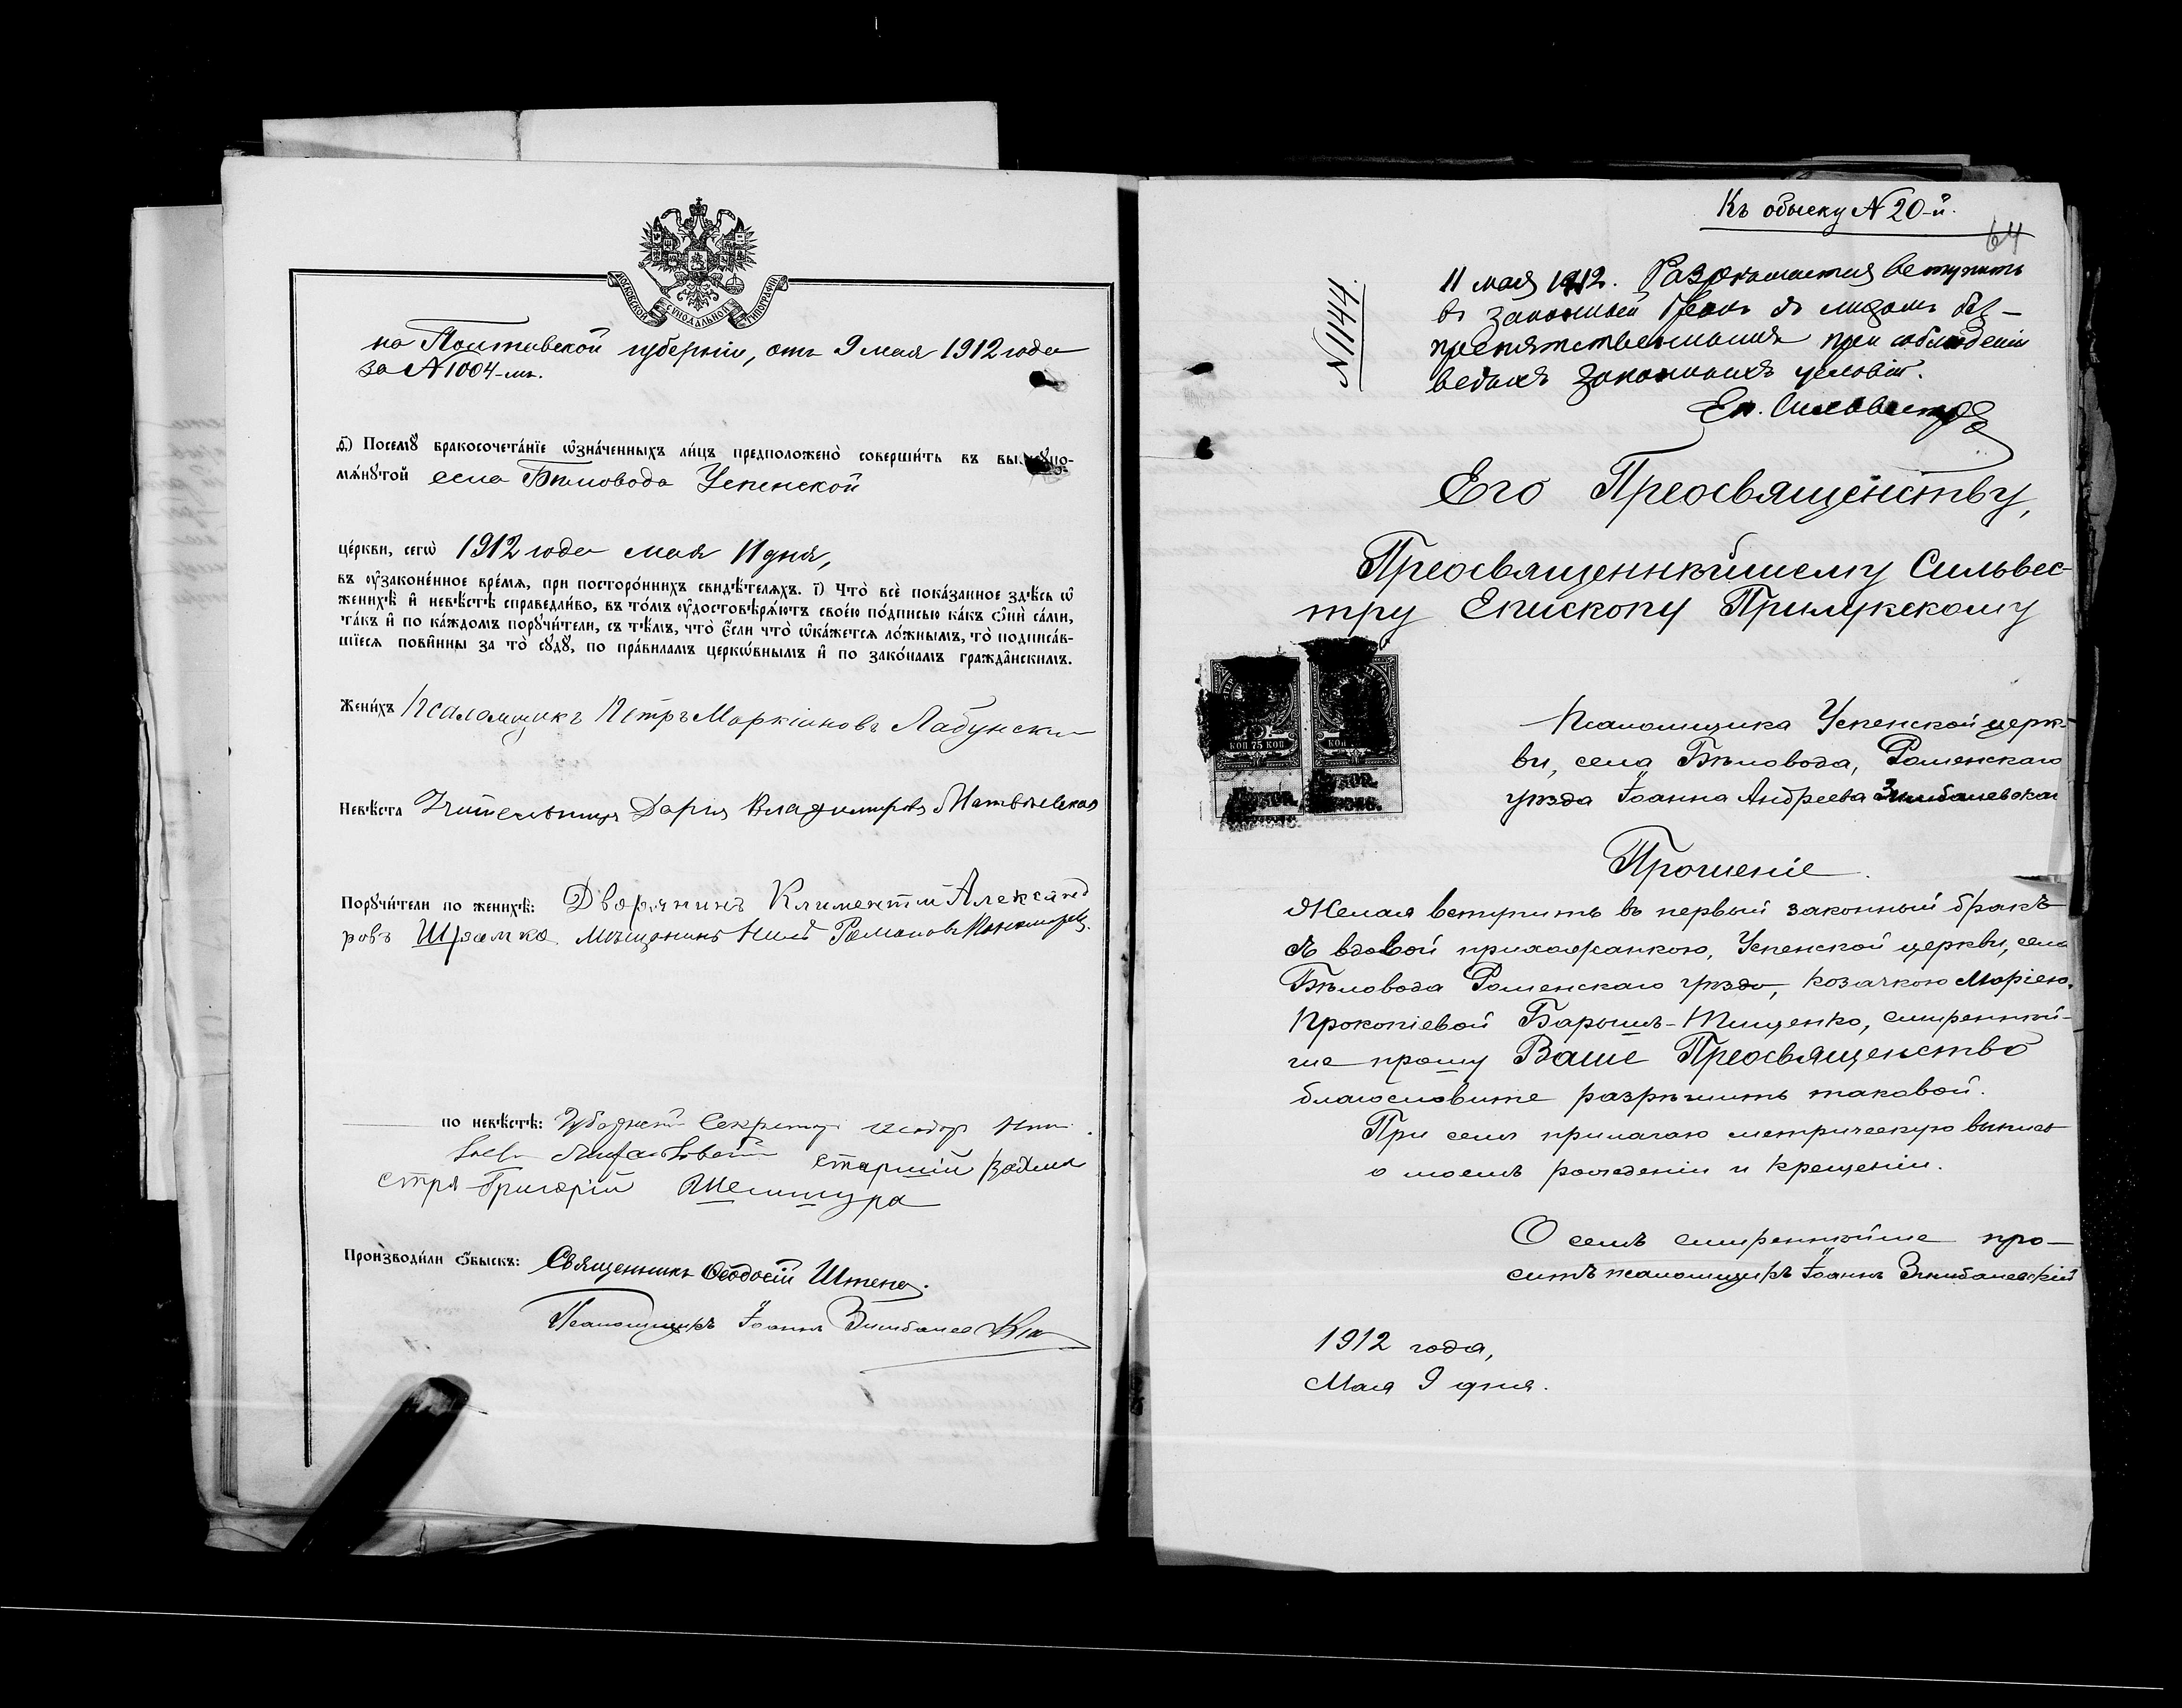 МОСКОВСКОЙ СѴНОДАЛЬНОЙ ТИПОГРАФІИ
на Полтавской губерніи, отъ 9 мая 1912 года
за № 1004-мъ.
Посемꙋ бракосочета́нїе ѡ҆зна́ченныхъ ли́цъ предположено̀ соверши́ть въ
мѧ́нꙋтой села Бѣловода Успенской
це́ркви, сегѡ̀ 1912 года мая 11 дня,
въ ᲂу҆зако́ненное вре́мѧ, при посторо́ннихъ свидѣ́телѧхъ. з҃) Что̀ всѐ пока́занное здѣ́сь ѡ҆
женихѣ̀ и҆ невѣ́стѣ справедли́во, въ то́мъ ᲂу҆достовѣрѧ́ютъ свое́ю по́дписью ка́къ ѻ҆нѝ са́ми,
та́къ и҆ по ка́ждомъ порꙋчи́тели, съ тѣ́мъ, что̀ є҆́сли что̀ ѡ҆ка́жетсѧ ло́жнымъ, то̀ подписа́в-
шїесѧ пови́нны за то̀ сꙋдꙋ̀, по пра́виламъ церко́внымъ и҆ по зако́намъ гражда́нскимъ.
Жени́хъ Псаломщикъ Петръ Маркіановъ Лабунски
Невѣ́ста Учительница Дарія Владимирова Матвѣевская
Порꙋчи́тели по женихѣ̀: Дворянинъ Климентій Александ
ровъ Шрамко. Мѣщанинъ Нилъ Романовъ
по невѣ́стѣ: Губернскій Секретарь
старшій
стръ Григорій Шешмура
Производи́ли ѻ҆́быскъ: Священникъ Ѳеодосій Штепа.
Псаломщикъ Іоаннъ Зимбалевскій
Къ обыску № 20-й.
64
№ 1144
11 мая 1912. Разрѣшается вступить
въ законный бракъ съ лицомъ без-
препятственнымъ при соблюденіи
всѣхъ законныхъ условій.
Еп. Сильвестръ
Его Преосвященству,
Преосвященнѣйшему Сильвес-
тру Епископу Прилукскому
КОП 75 КОП
КОП
Псаломщика Успенской церк-
ви, села Бѣловода, Роменскаго
уѣзда Іоанна Андреева Зимбалевскаго
Прошеніе.
Желая вступить въ первый законный бракъ
съ вдовой прихожанкою, Успенской церкви, села
Бѣловода Роменскаго уѣзда, козачкою Маріею
Прокопіевой Барышъ-Тищенко, смиреннѣй-
ше прошу Ваше Преосвященство
благословите разрѣшить таковой.
При семъ прилагаю метрическую выпись
о моемъ рожденіи и крещеніи.
О семъ смиреннѣйше про-
ситъ псаломщикъ Іоаннъ Зимбалевскій
1912 года,
Мая 9 дня.